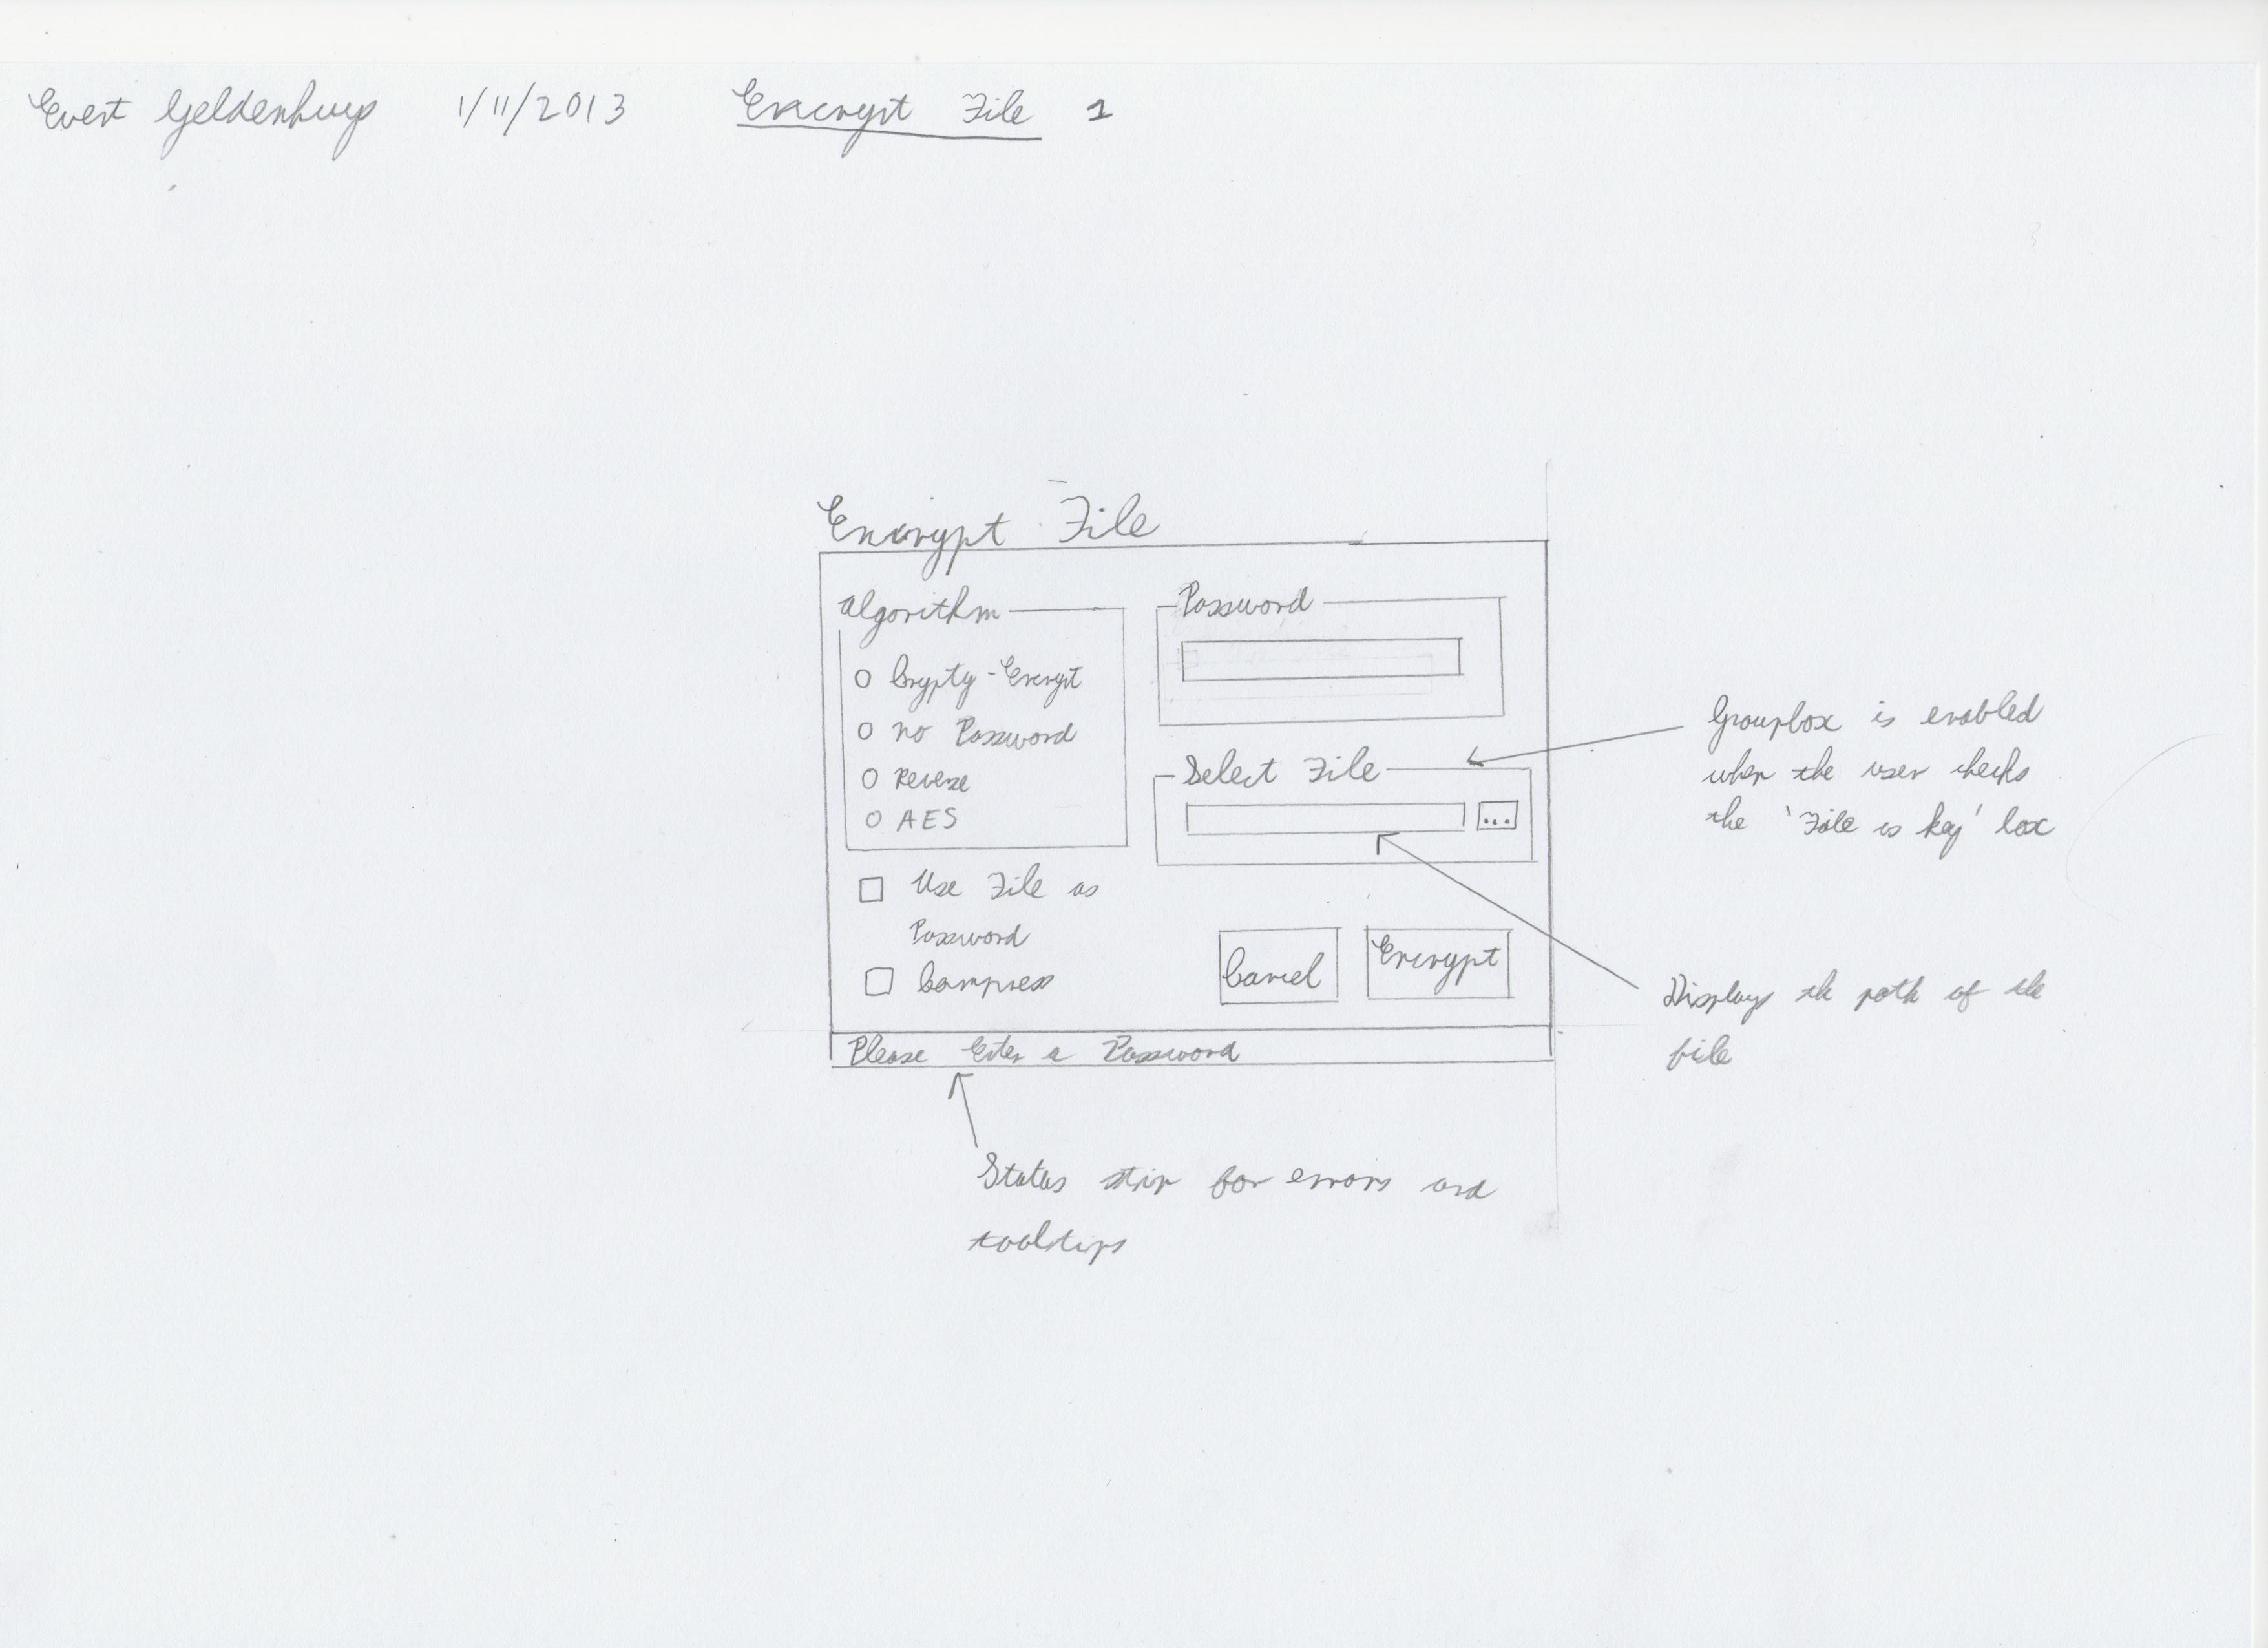 Evert Geldenhuys 1/11/2013 Encrypt File 1
Encrypt File
Algorithm
Crypty-Encrypt
No Password
Reverse
AES
Use File as
Password
Compress
Password
Select File
...
Cancel
Encrypt
Please Enter a Password
Groupbox is enabled
when the user checks
the 'File is key' box
Displays the path of the
file
Status strip for errors and
tooltips